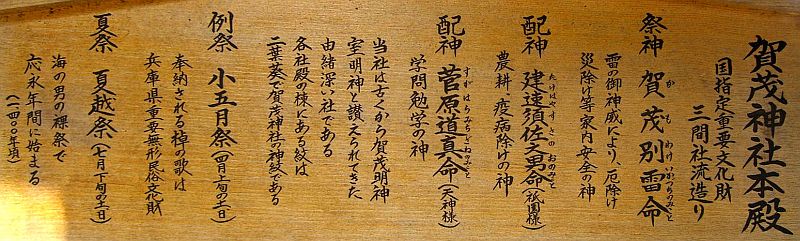 賀茂神社本殿
国指定重要文化財
三間社流造り
祭神 賀茂別雷命
かもわけいかづちのみこと
雷の御神威により、厄除け
災除け等家内安全の神
配神 建速須佐之男命(祇園様)
たけはやすさのおのみこと
農耕、疫病除けの神
配神 菅原道真命(天神様)
すがはらみちざねのみこと
学問勉学の神
当社は古くから賀茂明神
室明神と讃えられてきた
由緒深い社である
各社殿の棟にある紋は
二葉葵で賀茂神社の神紋である
例祭 小五月祭(四月上旬の土日)
奉納される棹の歌は
兵庫県重要無形民俗文化財
夏祭 夏越祭(七月下旬の土日)
海の男の裸祭で
応永年間に始まる
(一四〇〇年頃)